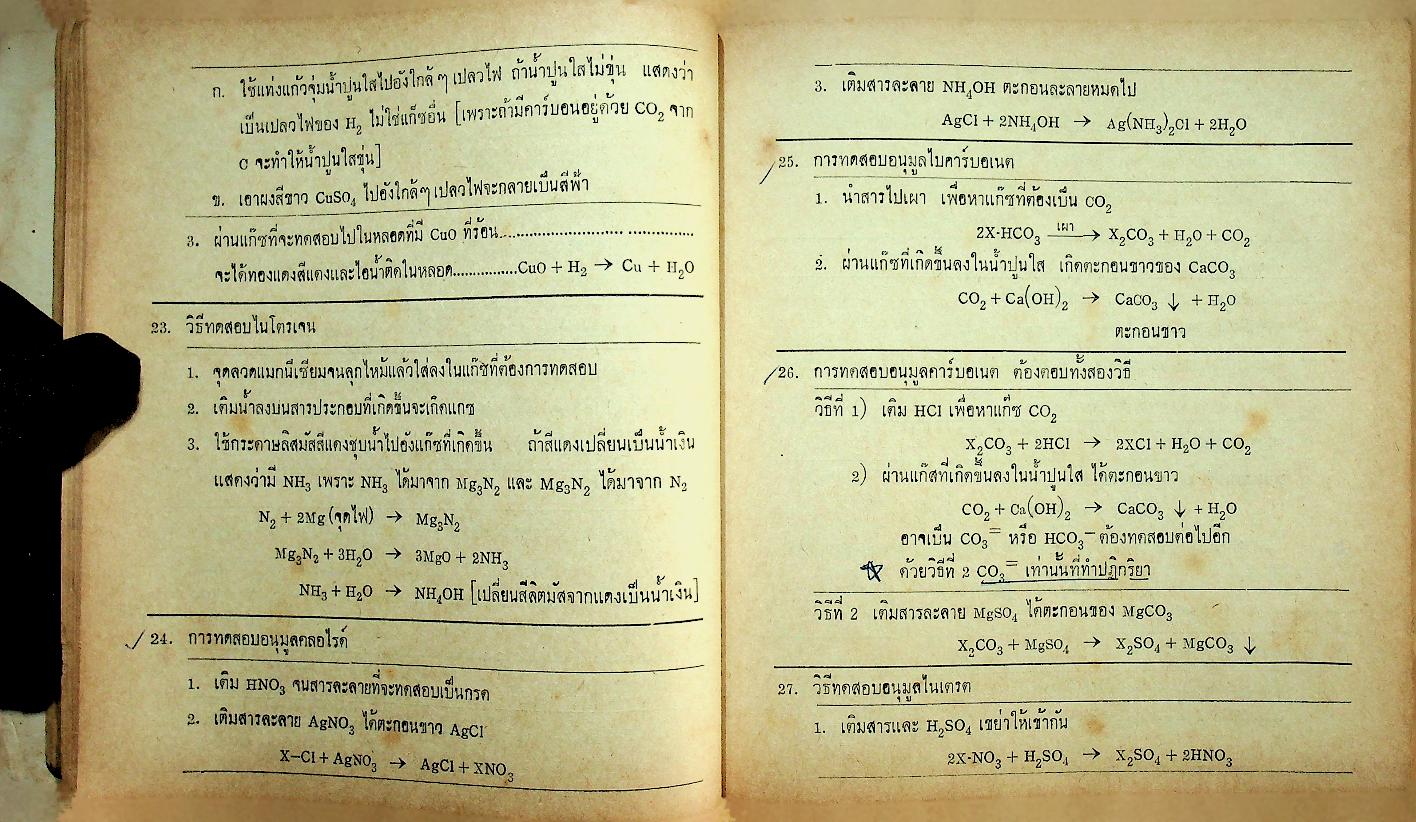 ก. ใช้แท่งแก้วจุ่มน้ำปูนใสไปอังใกล้ ๆ เปลวไฟ ถ้าน้ำปูนใสไม่ขุ่น แสดงว่า
เป็นเปลวไฟของ H₂ ไม่ใช่แก๊ซอื่น [เพราะถ้ามีคาร์บอนอยู่ด้วย CO₂ จาก
C จะทำให้น้ำปูนใสขุ่น]
ข. เอาผงสีขาว CuSO₄ ไปอังใกล้ๆ เปลวไฟจะกลายเป็นสีฟ้า
3. ผ่านแก๊ซที่จะทดสอบไปในหลอดที่มี CuO ที่ร้อน............................ ................
จะได้ทองแดงสีแดงและไอน้ำติดในหลอด................CuO + H₂ → Cu + H₂O
23. วิธีทดสอบไนโตรเจน
1. จุดลวดแมกนีเซียมจนลุกไหม้แล้วใส่ลงในแก๊ซที่ต้องการทดสอบ
2. เติมน้ำลงบนสารประกอบที่เกิดขึ้นจะเกิดแกซ
3. ใช้กระดาษลิสมัสสีแดงชุบน้ำไปอังแก๊ซที่เกิดขึ้น ถ้าสีแดงเปลี่ยนเป็นน้ำเงิน
แสดงว่ามี NH₃ เพราะ NH₃ ได้มาจาก Mg₃N₂ และ Mg₃N₂ ได้มาจาก N₂
N₂ + 2Mg (จุดไฟ) → Mg₃N₂
Mg₃N₂ + 3H₂O → 3MgO + 2NH₃
NH₃ + H₂O → NH₄OH [เปลี่ยนสีลิตมัสจากแดงเป็นน้ำเงิน]
24. การทดสอบอนุมูลคลอไรด์
1. เติม HNO₃ จนสารละลายที่จะทดสอบเป็นกรด
2. เติมสารละลาย AgNO₃ ได้ตะกอนขาว AgCl
X–Cl + AgNO₃ → AgCl + XNO₃
3. เติมสารละลาย NH₄OH ตะกอนละลายหมดไป
AgCl + 2NH₄OH → Ag(NH₃)₂Cl + 2H₂O
25. การทดสอบอนุมูลไบคาร์บอเนต
1. นำสารไปเผา เพื่อหาแก๊ซที่ต้องเป็น CO₂
2X·HCO₃ เผา → X₂CO₃ + H₂O + CO₂
2. ผ่านแก๊ซที่เกิดขึ้นลงในน้ำปูนใส เกิดตะกอนขาวของ CaCO₃
CO₂ + Ca(OH)₂ → CaCO₃ ↓ + H₂O
ตะกอนขาว
26. การทดสอบอนุมูลคาร์บอเนต ต้องตอบทั้งสองวิธี
วิธีที่ 1) เติม HCl เพื่อหาแก๊ซ CO₂
X₂CO₃ + 2HCl → 2XCl + H₂O + CO₂
2) ผ่านแก๊สที่เกิดขึ้นลงในน้ำปูนใส ได้ตะกอนขาว
CO₂ + Ca(OH)₂ → CaCO₃ ↓ + H₂O
อาจเป็น CO₃⁼ หรือ HCO₃⁻ ต้องทดสอบต่อไปอีก
ด้วยวิธีที่ 2 CO₃⁼ เท่านั้นที่ทำปฏิกริยา
วิธีที่ 2 เติมสารละลาย MgSO₄ ได้ตะกอนของ MgCO₃
X₂CO₃ + MgSO₄ → X₂SO₄ + MgCO₃ ↓
27. วิธีทดสอบอนุมูลไนเตรต
1. เติมสารและ H₂SO₄ เขย่าให้เข้ากัน
2X·NO₃ + H₂SO₄ → X₂SO₄ + 2HNO₃